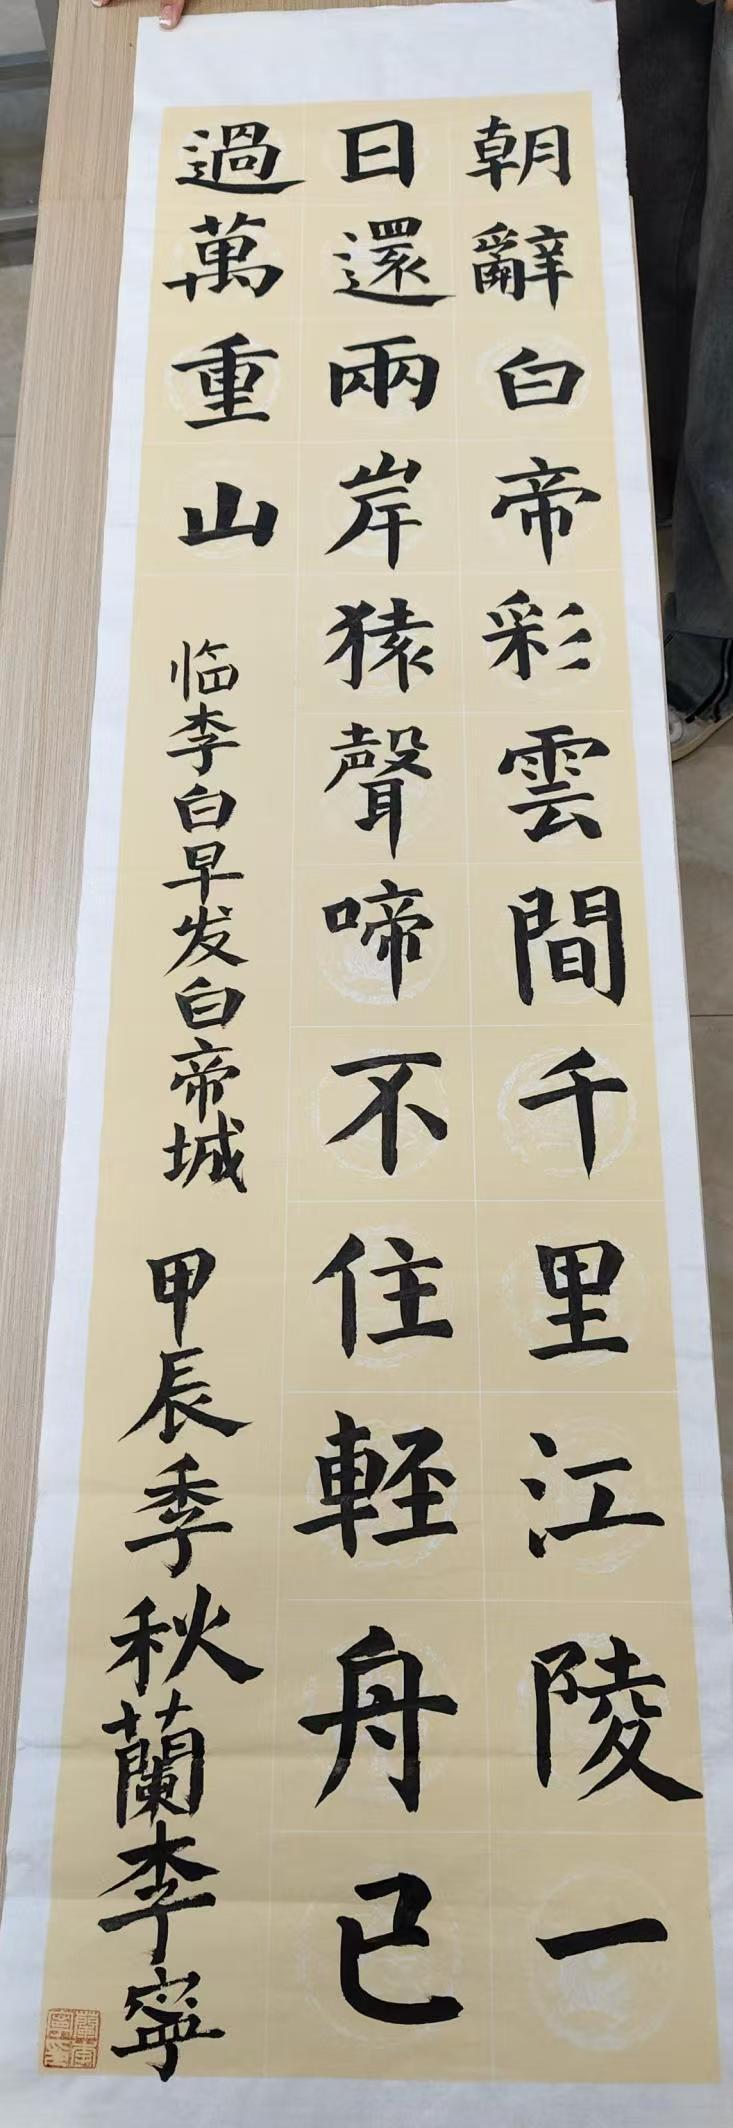 朝辭白帝彩雲間千里江陵一
日還兩岸猿聲啼不住輕舟已
過萬重山
临李白早发白帝城 甲辰季秋蘭李寧